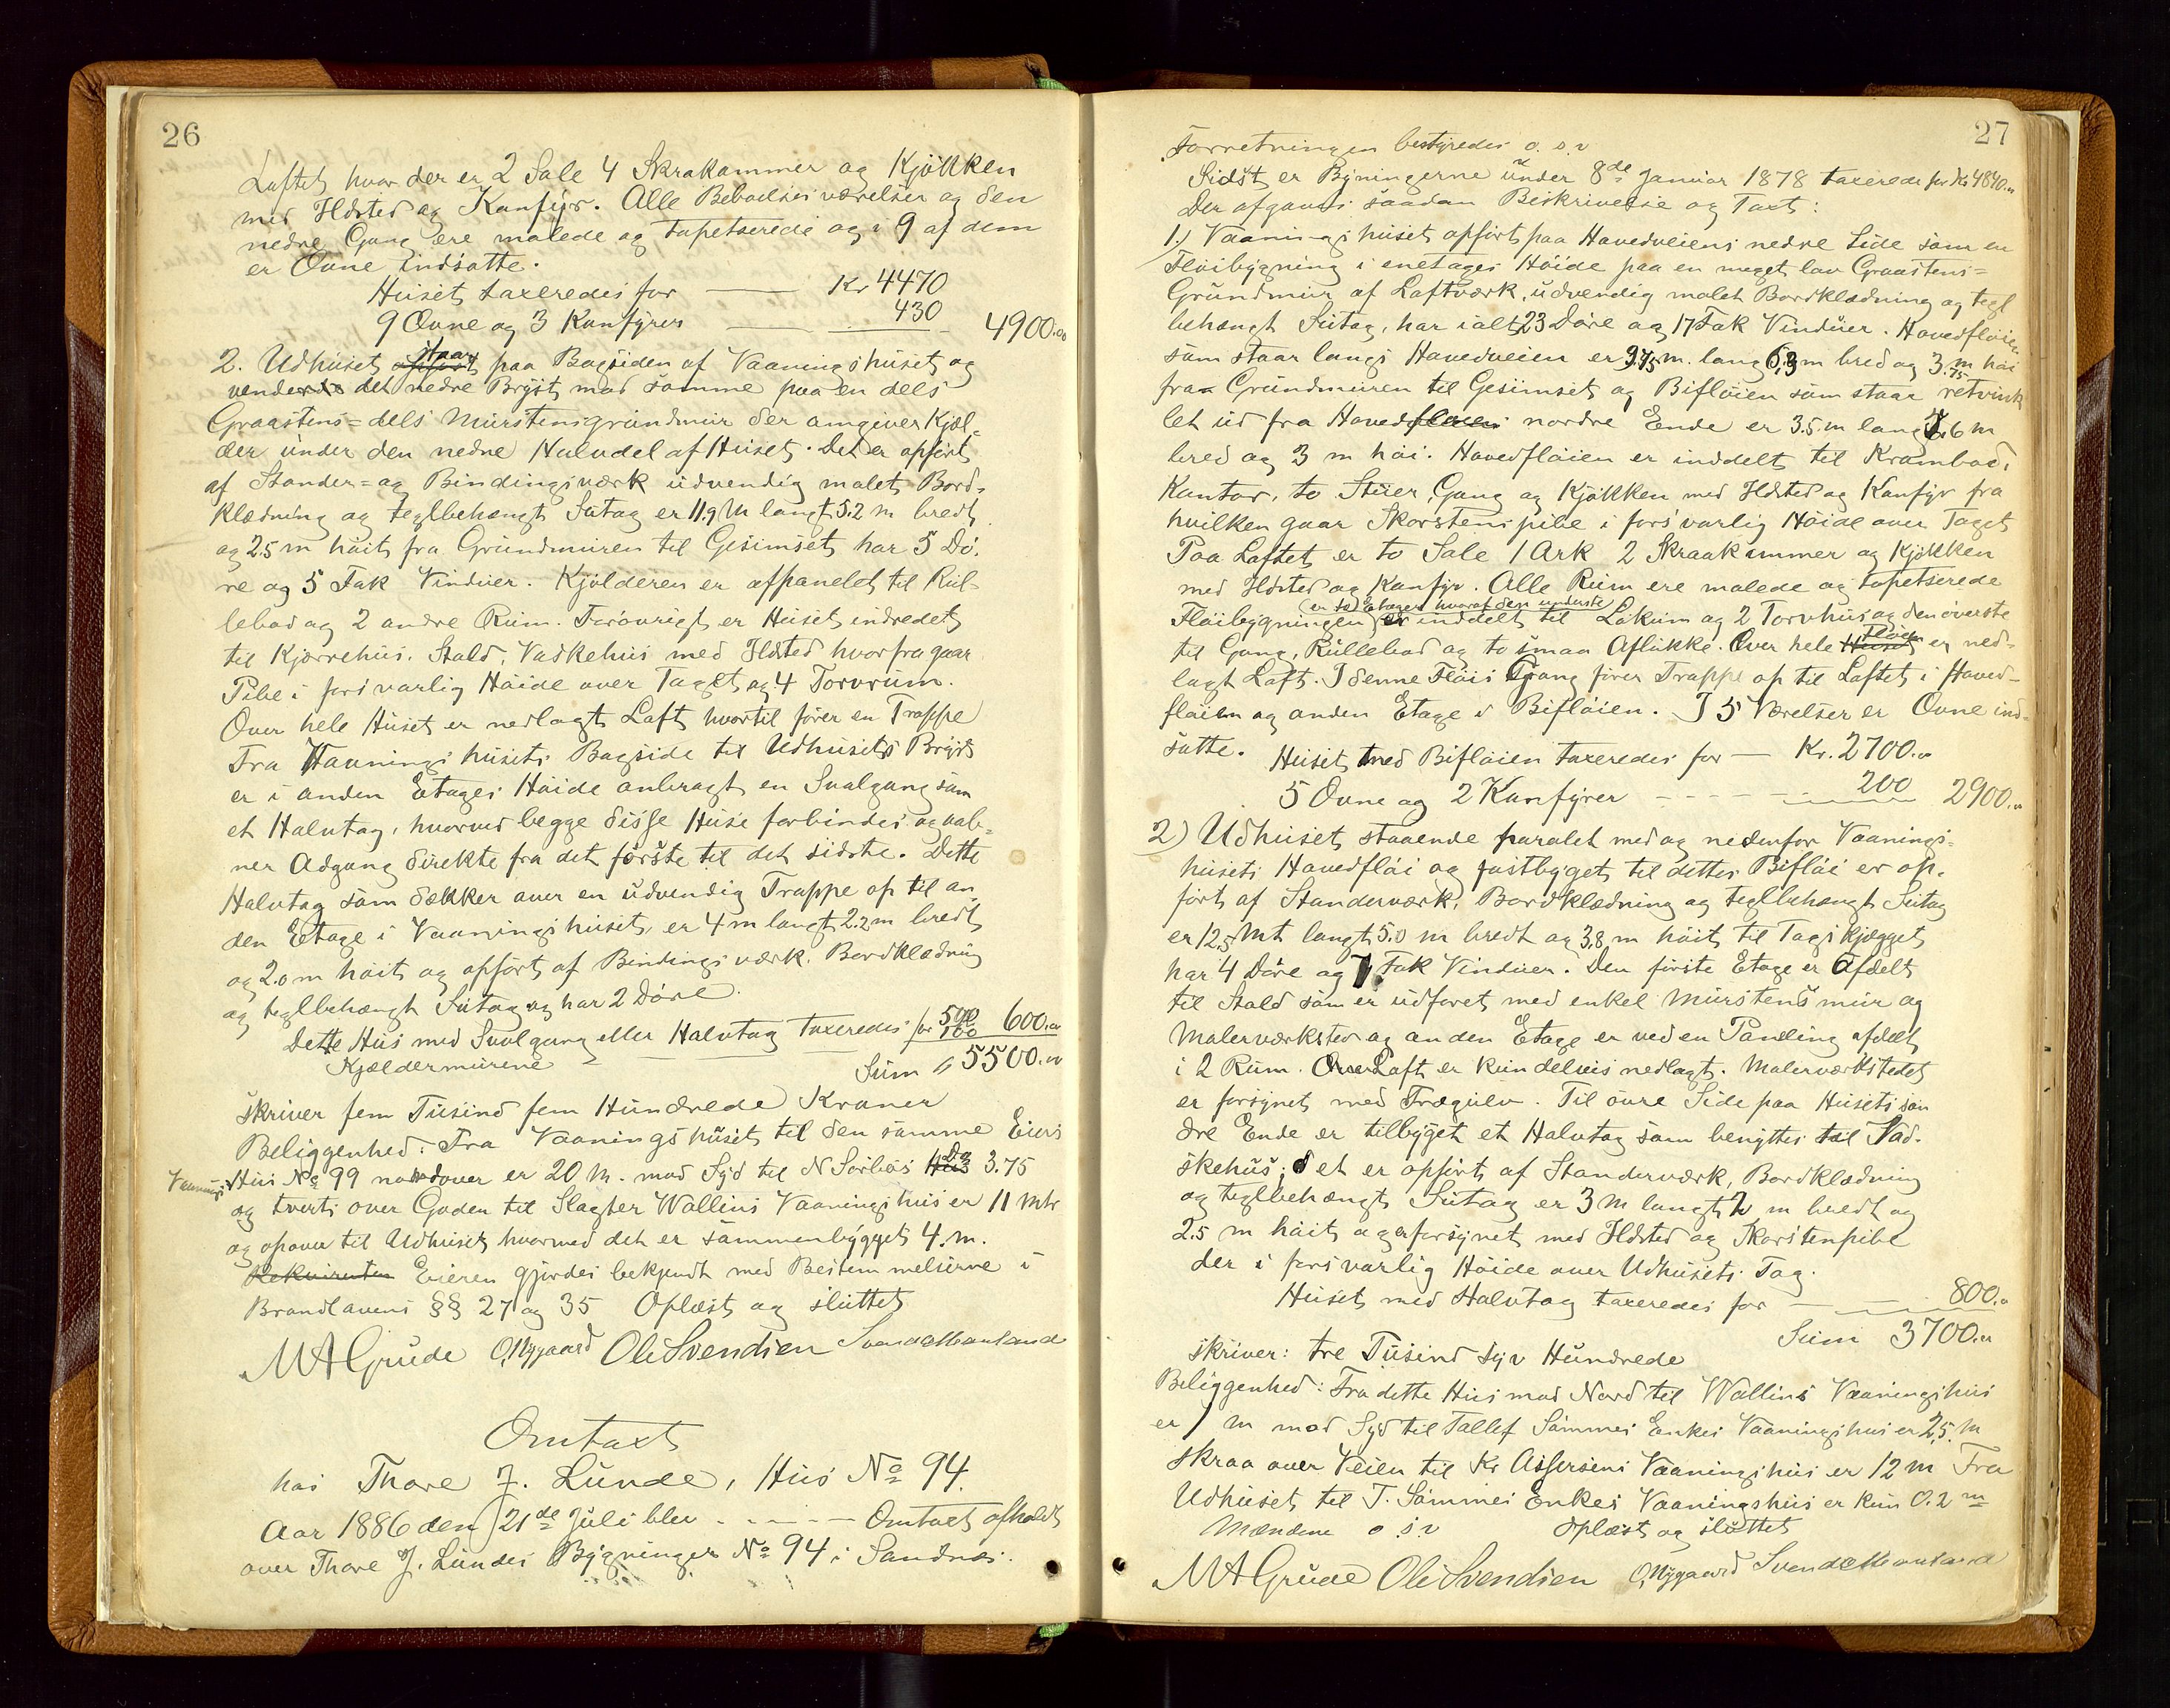 26
Loftet hvor der er 2 Sale 4 Skrakammer og Kjökken
med Ildsted og Komfyr. Alle Beboelsesværelser og den
nedre Gang ere malede og tapetserede og i 9 af dem
er Ovne indsatte.
Huset taxeredes for — Kr 4470
9 Ovne og 3 Komfyrer — 430 4900.00
2. Udhuset opført staar paa Bagsiden af Vaaningshuset og
vender det nedre Bryst mod samme paa en dels
Graastens= dels Murstensgrundmur der omgiver Kjæl-
der under den nedre Halvdel af Huset. Det er opført
af Stander= og Bindingsværk udvendig malet Bord-
klædning og teglbehængt Sutag er 11.9 M langt 5.2 m bredt
og 2.5 m høit fra Grundmuren til Gesimset har 5 Dö-
re og 5 Fak Vinduer. Kjelderen er afpanelet til Rul-
lebod og 2 andre Rum. Forövrigt er Huset indredet
til Kjærrehus, Stald, Vaskehus med Ildsted hvorfra gaar
Pibe i forsvarlig Höide over Taget og 4 Torvrum.
Over hele Huset er nedlagt Loft hvortil förer en Trappe
Fra Vaaningshusets Bagside til Udhusets Bryst
er i anden Etages Höide anbragt en Svalgang som
et Halvtag, hvorved begge disse Huse forbindes og aab-
ner Adgang direkte fra det förste til det sidste. Dette
Halvtag som dækker over en udvendig Trappe op til an
den Etage i Vaaningshuset, er 4 m langt 2.2 m bredt
og 2.0 m höit og opfört af Bindingsværk, Bordklædning
og teglbehængt Sutag og har 2 Döre.
Dette Hus med Svalgang eller Halvtag taxeredes for 500
Kjældermurene — 100 600.00
Sum 5500.00
skriver fem Tusind fem Hundrede Kroner
Beliggenhed: Fra Vaaningshuset til den samme Eiers
Vaanings Hus No 99 nordover er 20 M. mod Syd til N Sörbös Hus Do 3.75
og tverts over Gaden til Slagter Wallins Vaaningshus er 11 Mtr
og opover til Udhuset hvormed det er sammenbygget 4. m.
Rekvirenten Eieren gjordes bekjendt med Bestemmelserne i
Brandlovens §§ 27 og 35 Oplæst og sluttet
MAGrude O. Nygaard Ole Svendsen
Omtaxt
hos Thore J. Lunde, Hus No 94.
Aar 1886 den 21de Juli blev - - - - Omtaxt afholdt
over Thore J. Lundes Bygninger No 94 i Sandnæs.
27
Forretningen bestyredes o. s. v
Sidst er Bygningerne under 8de Januar 1878 taxerede for Kr 4840.00
Der afgaves saadan Beskrivelse og Taxt:
1.) Vaaningshuset opfört paa Hovedveiens nedre Side som en
Flöibygning i enetages Höide paa en meget lav Graastens=
Grundmur af Laftværk, udvendig malet Bordklædning og tegl
behængt Sutag, har ialt 23 Döre og 17 Fak Vinduer. Hovedflöien
som staar langs Hovedveien er 9.75 m. lang 6,3 m bred og 3.75 m höi
fra Grundmuren til Gesimset og Biflöien som staar retvink
let ud fra Hovedflöiens nordre Ende er 3.5 m lang 7.6 m
bred og 3 m höi. Hovedflöien er inddelt til Krambod,
Kontor, to Stuer, Gang og Kjökken med Ildsted og Komfyr fra
hvilken gaar Skorstenspibe i forsvarlig Höide over Taget
Paa Loftet er to Sale 1 Ark 2 Skraakammer og Kjökken
med Ildsted og Komfyr. Alle Rum ere malede og tapetserede
Flöibygningen (er to) Etager hvoraf den underste er inddelt til Lokum og 2 Torvhus og den överste
til Gang, Rullebod og to smaa Aflukke. Over hele Huset Flöien er ned-
lagt Loft. I denne Flöis Gang förer Trappe op til Loftet i Hoved-
flöien og anden Etage i Biflöien. I 5 Værelser er Ovne ind-
satte.
Huset med Biflöien taxeredes for — Kr. 2700.00
5 Ovne og 2 Komfyrer - - - - 200 2900.00
2) Udhuset staaende paralel med og nedenfor Vaanings-
husets Hovedflöi og fastbygget til dettes Biflöi er op-
fört af Standerværk, Bordklædning og teglbehængt Sutag
er 12.5 Mt langt 5.0 m bredt og 3.8 m höit til Tagskjægget
har 4 Döre og 7 Fak Vinduer. Den förste Etage er afdelt
til Stald som er udforet med enkel Murstensmur og
Malerværksted og anden Etage er ved en Paneling afdelt
i 2 Rum. Over Loft er kun delvis nedlagt. Malerværkstedet
er forsynet med Trægulv. Til övre Side paa Husets sön
dre Ende er tilbygget et Halvtag som benyttes til Vad-
skehus; det er opfört af Standerværk, Bordklædning
og teglbehængt Sutag er 3 M langt 2 m bredt og
2.5 m höit og er forsynet med Ildsted og Skorstenpibe
der i forsvarlig Höide over Udhusets Tag.
Huset med Halvtag taxeredes for — 800.00
Sum 3700.00
skriver: tre Tusind syv Hundrede
Beliggenhed: Fra dette Hus mod Nord til Wallins Vaaningshus
er 1 m mod Syd til Tallef Sömmes Enkes Vaaningshus er 2,5 m
skraa over Veien til Kr Assersens Vaaningshus er 12 m Fra
Udhuset til T. Sömmes Enkes Vaaningshus er kun 0.2 m
Mændene o. s. v Oplæst og sluttet
MAGrude Ole Svendsen O. Nygaard